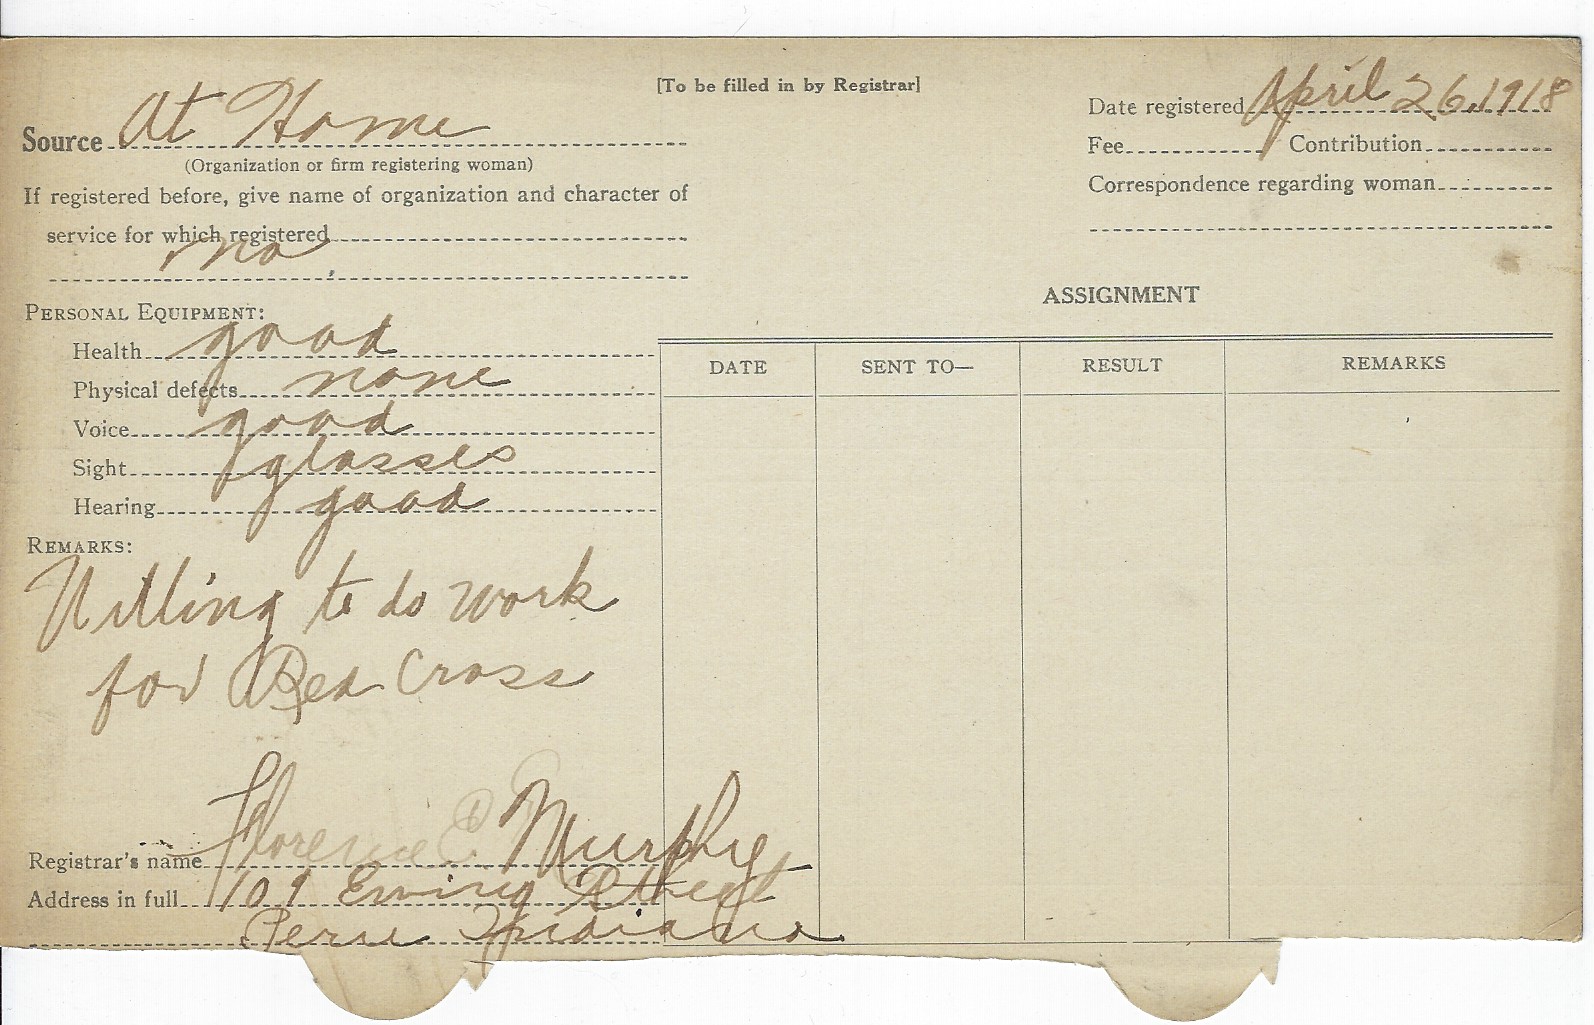 [To be filled in by Registrar]
Source At Home
(Organization or firm registering woman)
If registered before, give name of organization and character of
service for which registered
no
Date registered April 26, 1918
Fee Contribution
Correspondence regarding woman
PERSONAL EQUIPMENT:
Health good
Physical defects none
Voice good
Sight glasses
Hearing good
REMARKS:
Willing to do work
for Red Cross
ASSIGNMENT
DATE SENT TO— RESULT REMARKS
Registrar's name Florence E. Murphy
Address in full 109 Ewing Street
Peru Indiana